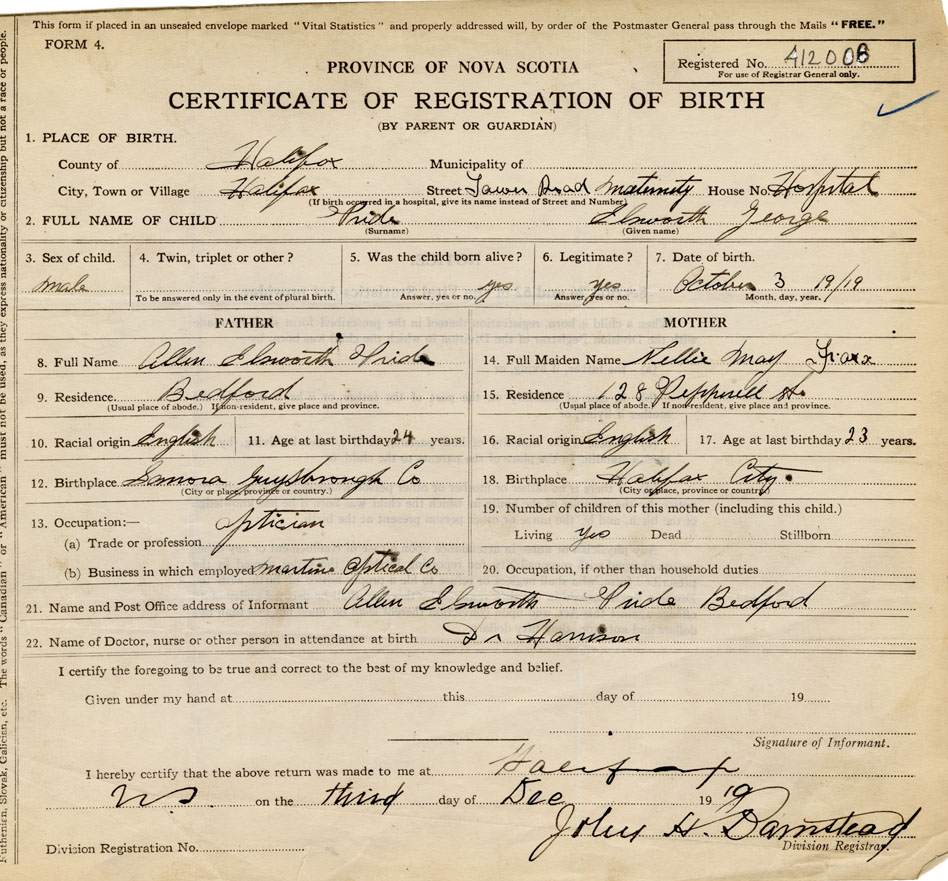 This form if placed in an unsealed envelope marked "Vital Statistics" and properly addressed will, by order of the Postmaster General pass through the Mails "FREE."
FORM 4.
Registered No. 412006
For use of Registrar General only.
PROVINCE OF NOVA SCOTIA
CERTIFICATE OF REGISTRATION OF BIRTH
(BY PARENT OR GUARDIAN)
1. PLACE OF BIRTH.
County of Halifax Municipality of
City, Town or Village Halifax Street Tower Road Maternity House No. Hospital
(If birth occurred in a hospital, give its name instead of Street and Number)
2. FULL NAME OF CHILD Pride Elsworth George
(Surname) (Given name)
3. Sex of child. 4. Twin, triplet or other? 5. Was the child born alive? 6. Legitimate? 7. Date of birth.
male yes yes October 3 19/19
To be answered only in the event of plural birth. Answer, yes or no. Answer, yes or no. Month, day, year.
FATHER MOTHER
8. Full Name Allen Elsworth Pride 14. Full Maiden Name Nellie May
9. Residence. Bedford 15. Residence 128 Pepperell St.
(Usual place of abode.) If non-resident, give place and province. (Usual place of abode.) If non-resident, give place and province.
10. Racial origin English 11. Age at last birthday 24 years. 16. Racial origin English 17. Age at last birthday 23 years.
12. Birthplace Sonora Guysbrough Co 18. Birthplace Halifax City.
(City or place, province or country.) (City or place, province or country)
13. Occupation:— optician 19. Number of children of this mother (including this child.)
(a) Trade or profession Living yes Dead Stillborn
(b) Business in which employed Optical Co 20. Occupation, if other than household duties
21. Name and Post Office address of Informant Allen Elsworth Pride Bedford
22. Name of Doctor, nurse or other person in attendance at birth Dr Harrison
I certify the foregoing to be true and correct to the best of my knowledge and belief.
Given under my hand at this day of 19
Signature of Informant.
I hereby certify that the above return was made to me at Halifax
N.S. on the third day of Dec 19 19
John H. Barnstead
Division Registration No. Division Registrar.
Ruthenian, Slovak, Galician, etc. The words "Canadian" or "American" must not be used, as they express nationality or citizenship but not a race or people.